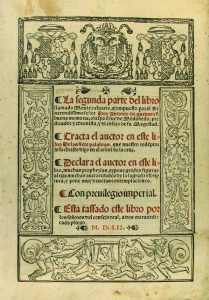 La segunda parte del libro
llamado Monte caluario, Compuesto por el
Reuerendissimo señor Don Antonio de gueuara de
buena memoria, obispo que fue de Mondoñedo, pre
dicador y chronista, y del consejo de su Magestad.
Tracta el auctor en este li
bro De las siete palabras, que nuestro redẽptor
iesu christo dixo en el arbol de la cruz.
Declara el auctor en este li
bro, muchas prophecias, expone grãdes figuras,
alega muchas auctoridades de la sagrada scrip
tura, y pone muy deuotas contemplaciones.
Con preuilegio imperial.
Esta tassado este libro por
los señores del consejo real, a dos marauedis
cada pliego.
M. D. LII.